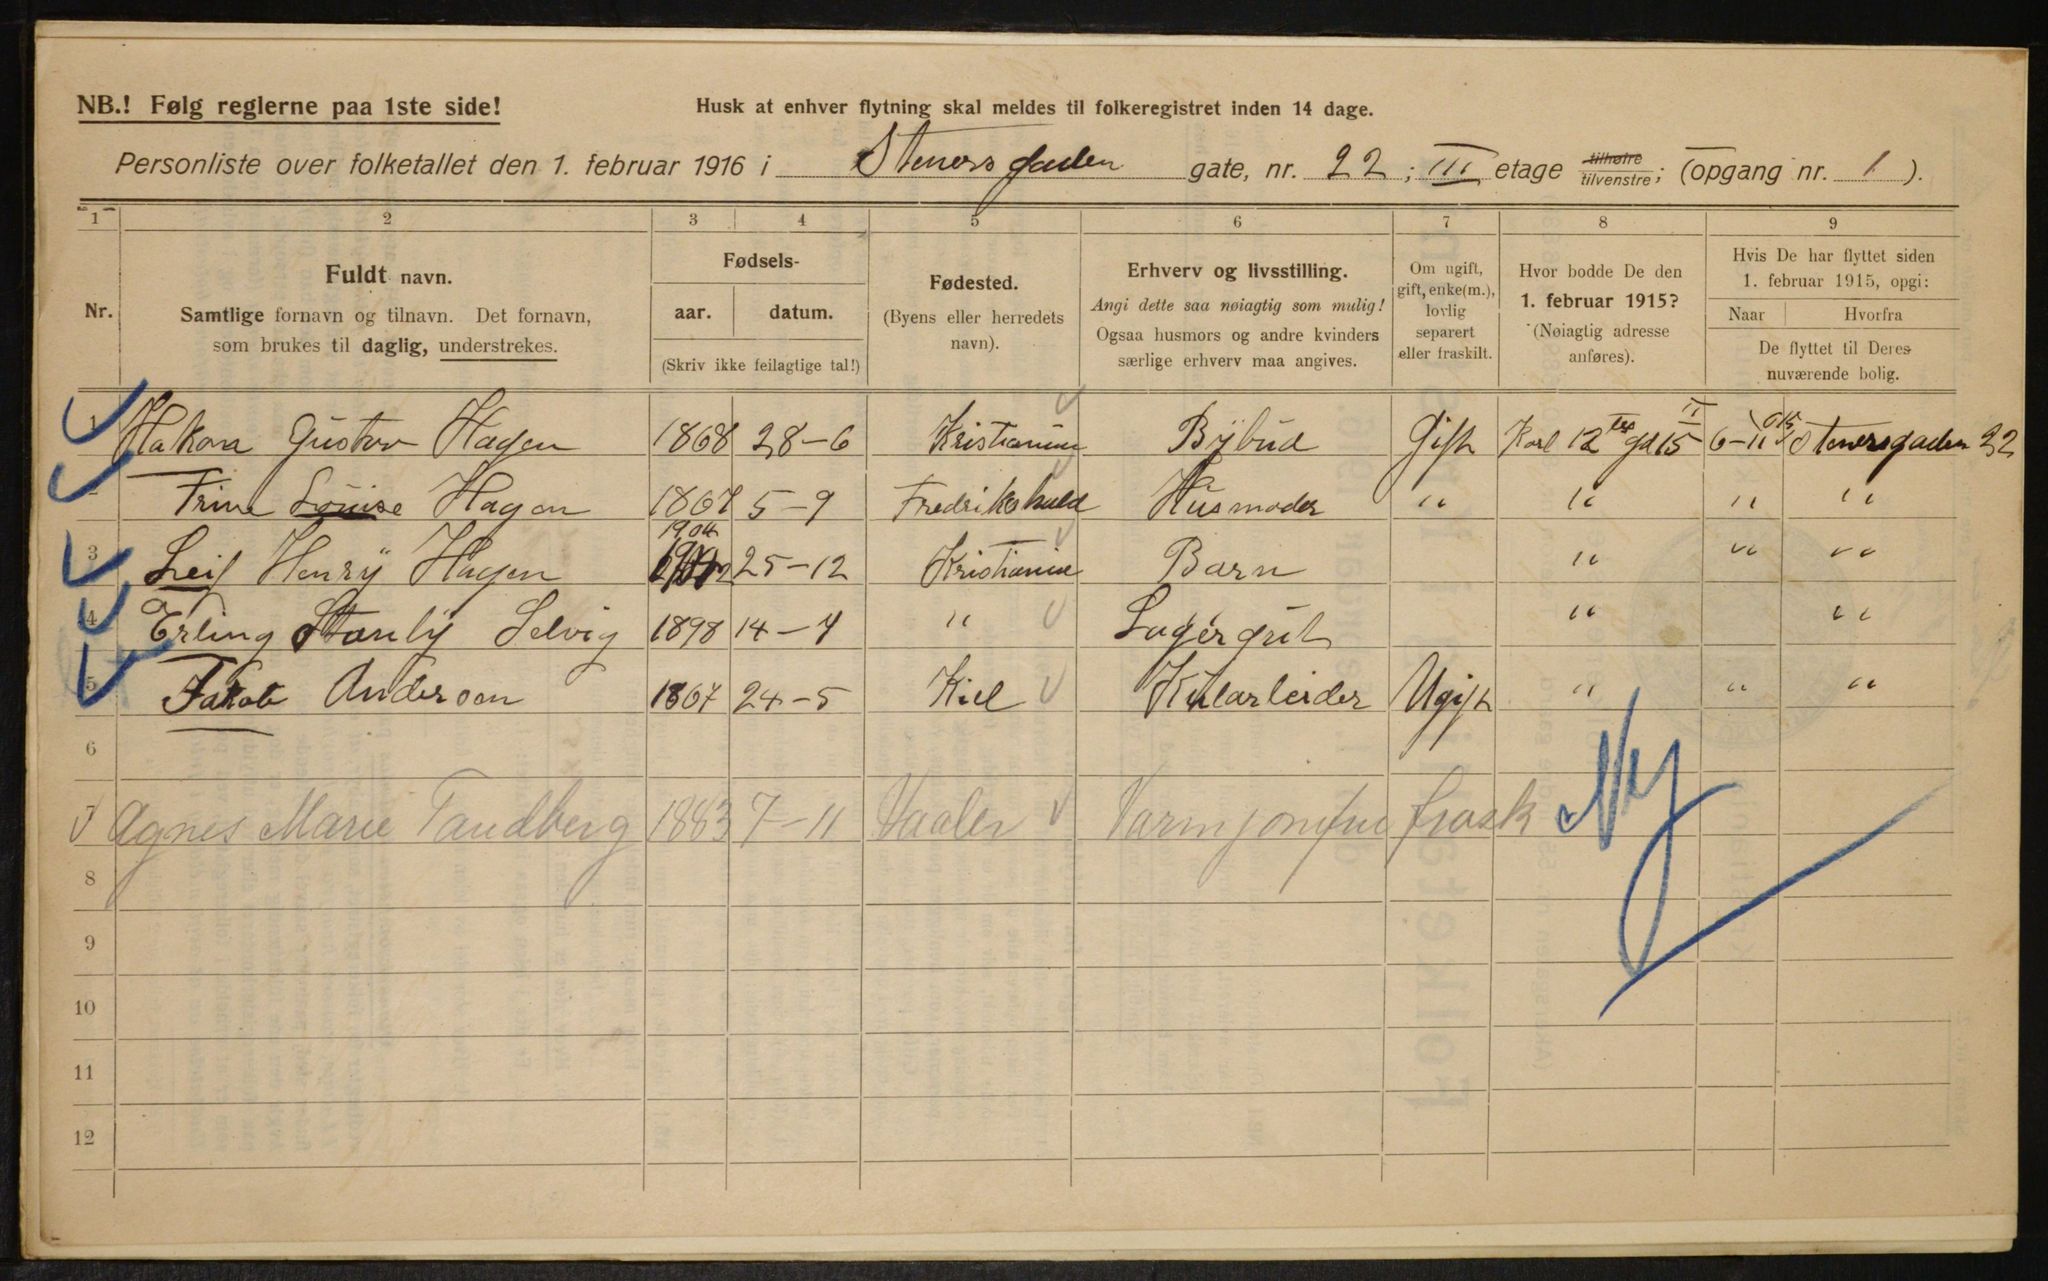 NB.! Følg reglerne paa 1ste side!
Husk at enhver flytning skal meldes til folkeregistret inden 14 dage.
Personliste over folketallet den 1. februar 1916 i Stenersgaden gate, nr. 22; III etage tilhøire tilvenstre; (opgang nr. 1).
1 2 3 4 5 6 7 8 9
Nr.
Fuldt navn.
Samtlige fornavn og tilnavn. Det fornavn,
som brukes til daglig, understrekes.
Fødsels-
aar. datum.
(Skriv ikke feilagtige tal!)
Fødested.
(Byens eller herredets
navn).
Erhverv og livsstilling.
Angi dette saa nøiagtig som mulig!
Ogsaa husmors og andre kvinders
særlige erhverv maa angives.
Om ugift,
gift, enke(m.),
lovlig
separert
eller fraskilt.
Hvor bodde De den
1. februar 1915?
(Nøiagtig adresse
anføres).
Hvis De har flyttet siden
1. februar 1915, opgi:
Naar Hvorfra
De flyttet til Deres
nuværende bolig.
1 Hakon Gustav Hagen 1868 28-6 Kristiania Bybud Gift Karl 12 tes gd 15 II 6-11 Stenersgaden 22
2 Trine Louise Hagen 1867 5-9 Fredrikshald Husmoder " " " "
3 Leif Henry Hagen 1904 25-12 Kristiania Barn " " "
4 Erling Stanly Selvig 1898 14-7 " Lagergut " "
5 Jakob Anderson 1867 24-5 Kiel Kularbeider Ugift " " "
6
7 Agnes Marie Tandberg 1883 7-11 Vaaler Varmjomfru frask
Ny
8
9
10
11
12